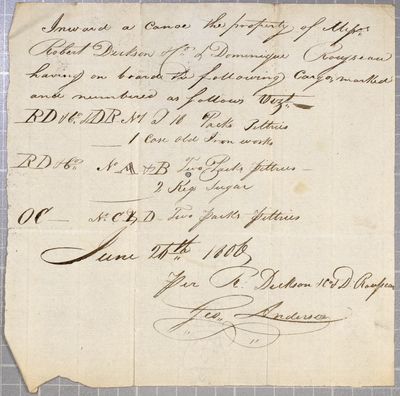 Inward a canoe the property of Messrs
Robert Dickson & Co & Dominique Rousseau
having on board the following Cargo, marked
and numbered as follows Vizt
RD & Co & DR No 1 a 10 Packs Peltries
1 Case old Iron works
RD & Co No A & B Two Packs Peltries
2 Keg Sugar
OC No C & D Two packs Peltries
June 26th 1806
Per R. Dickson & Co & D Rousseau
Geo. Anderson